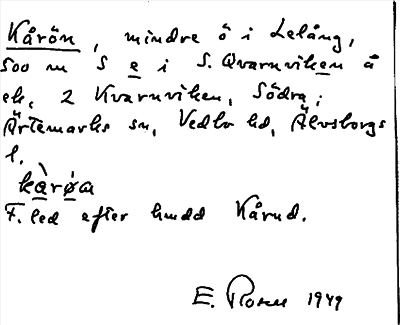 Kårön, mindre ö i Lelång,
500 m S e i S. Qvarnviken å
ek. 2 Kvarnviken, Södra;
Ärtemarks sn, Vedbo hd, Älvsborgs
l.
kàrøa
F. led efter hudd Kårud.
E. Rosell 1949